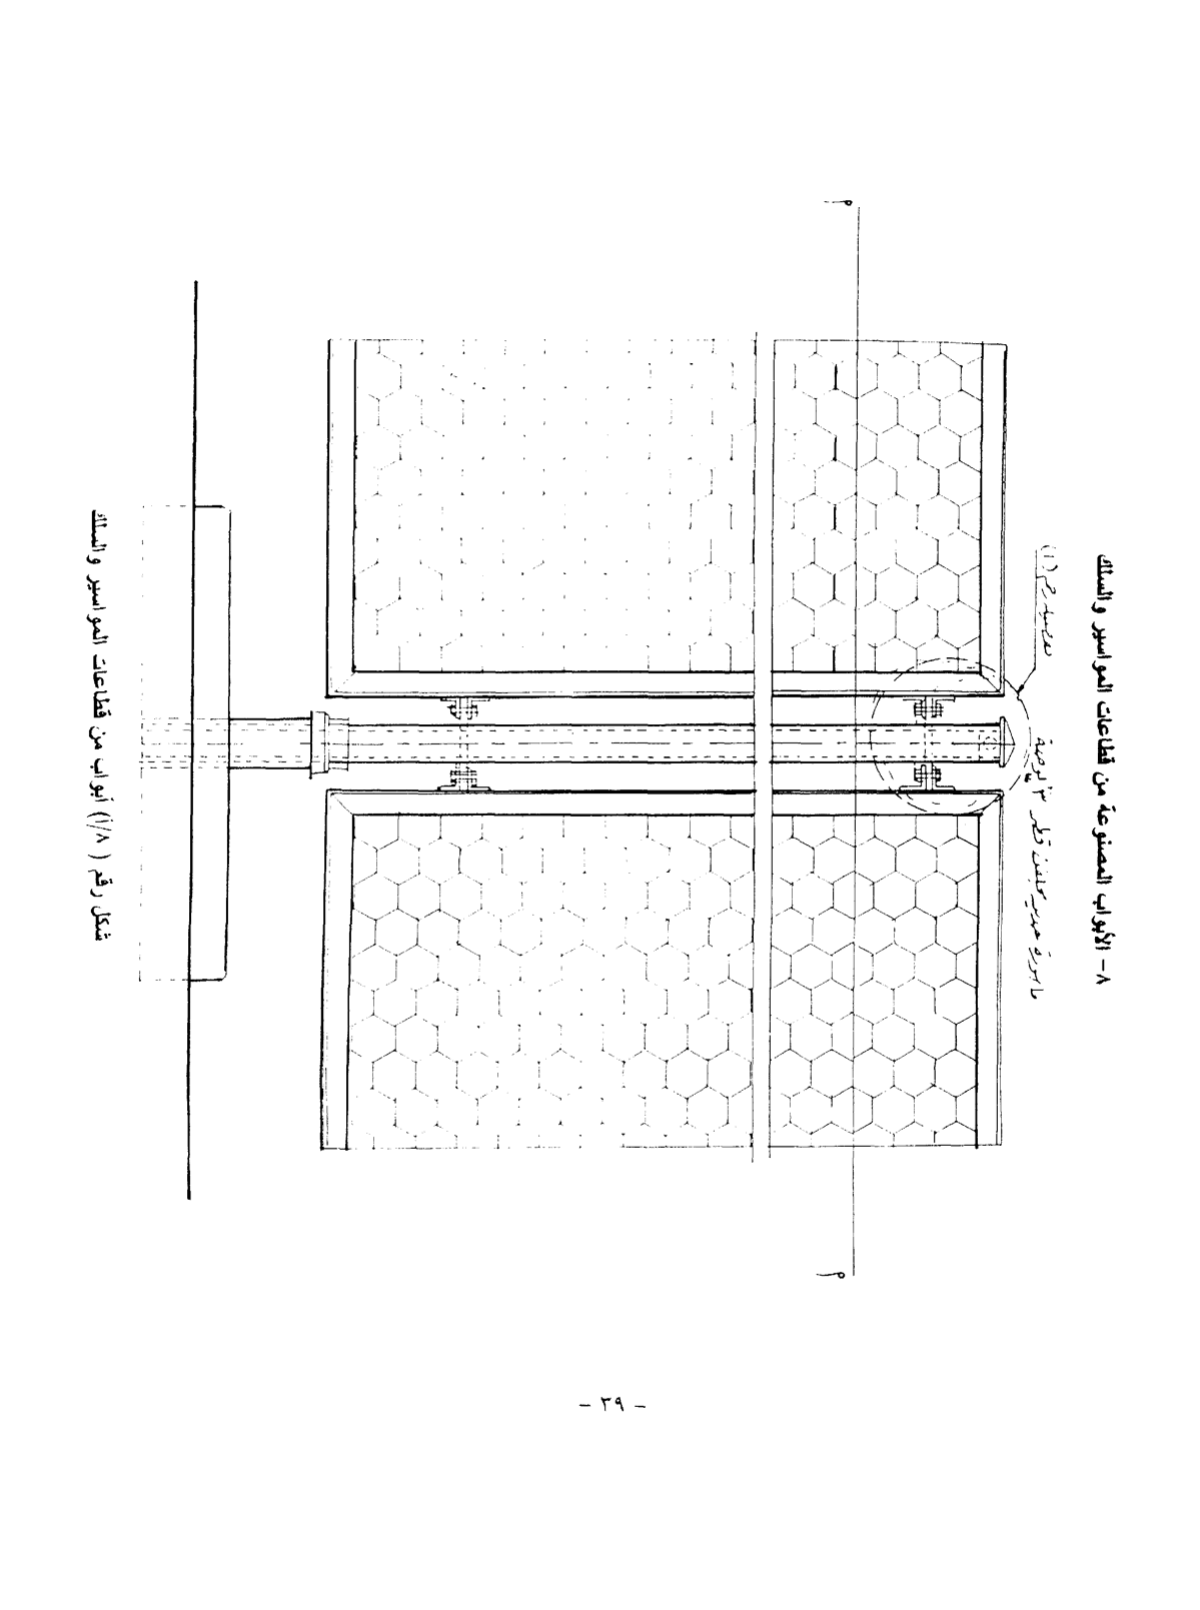 ٨ – الأبواب المصنوعة من قطاعات المواسير والسلك
تفصيلة رقم (١)
ماسورة حديد مجلفن قطر ٣ بوصة
أ
أ
شكل رقم ( ٨/أ) أبواب من قطاعات المواسير والسلك
– ٣٩ –